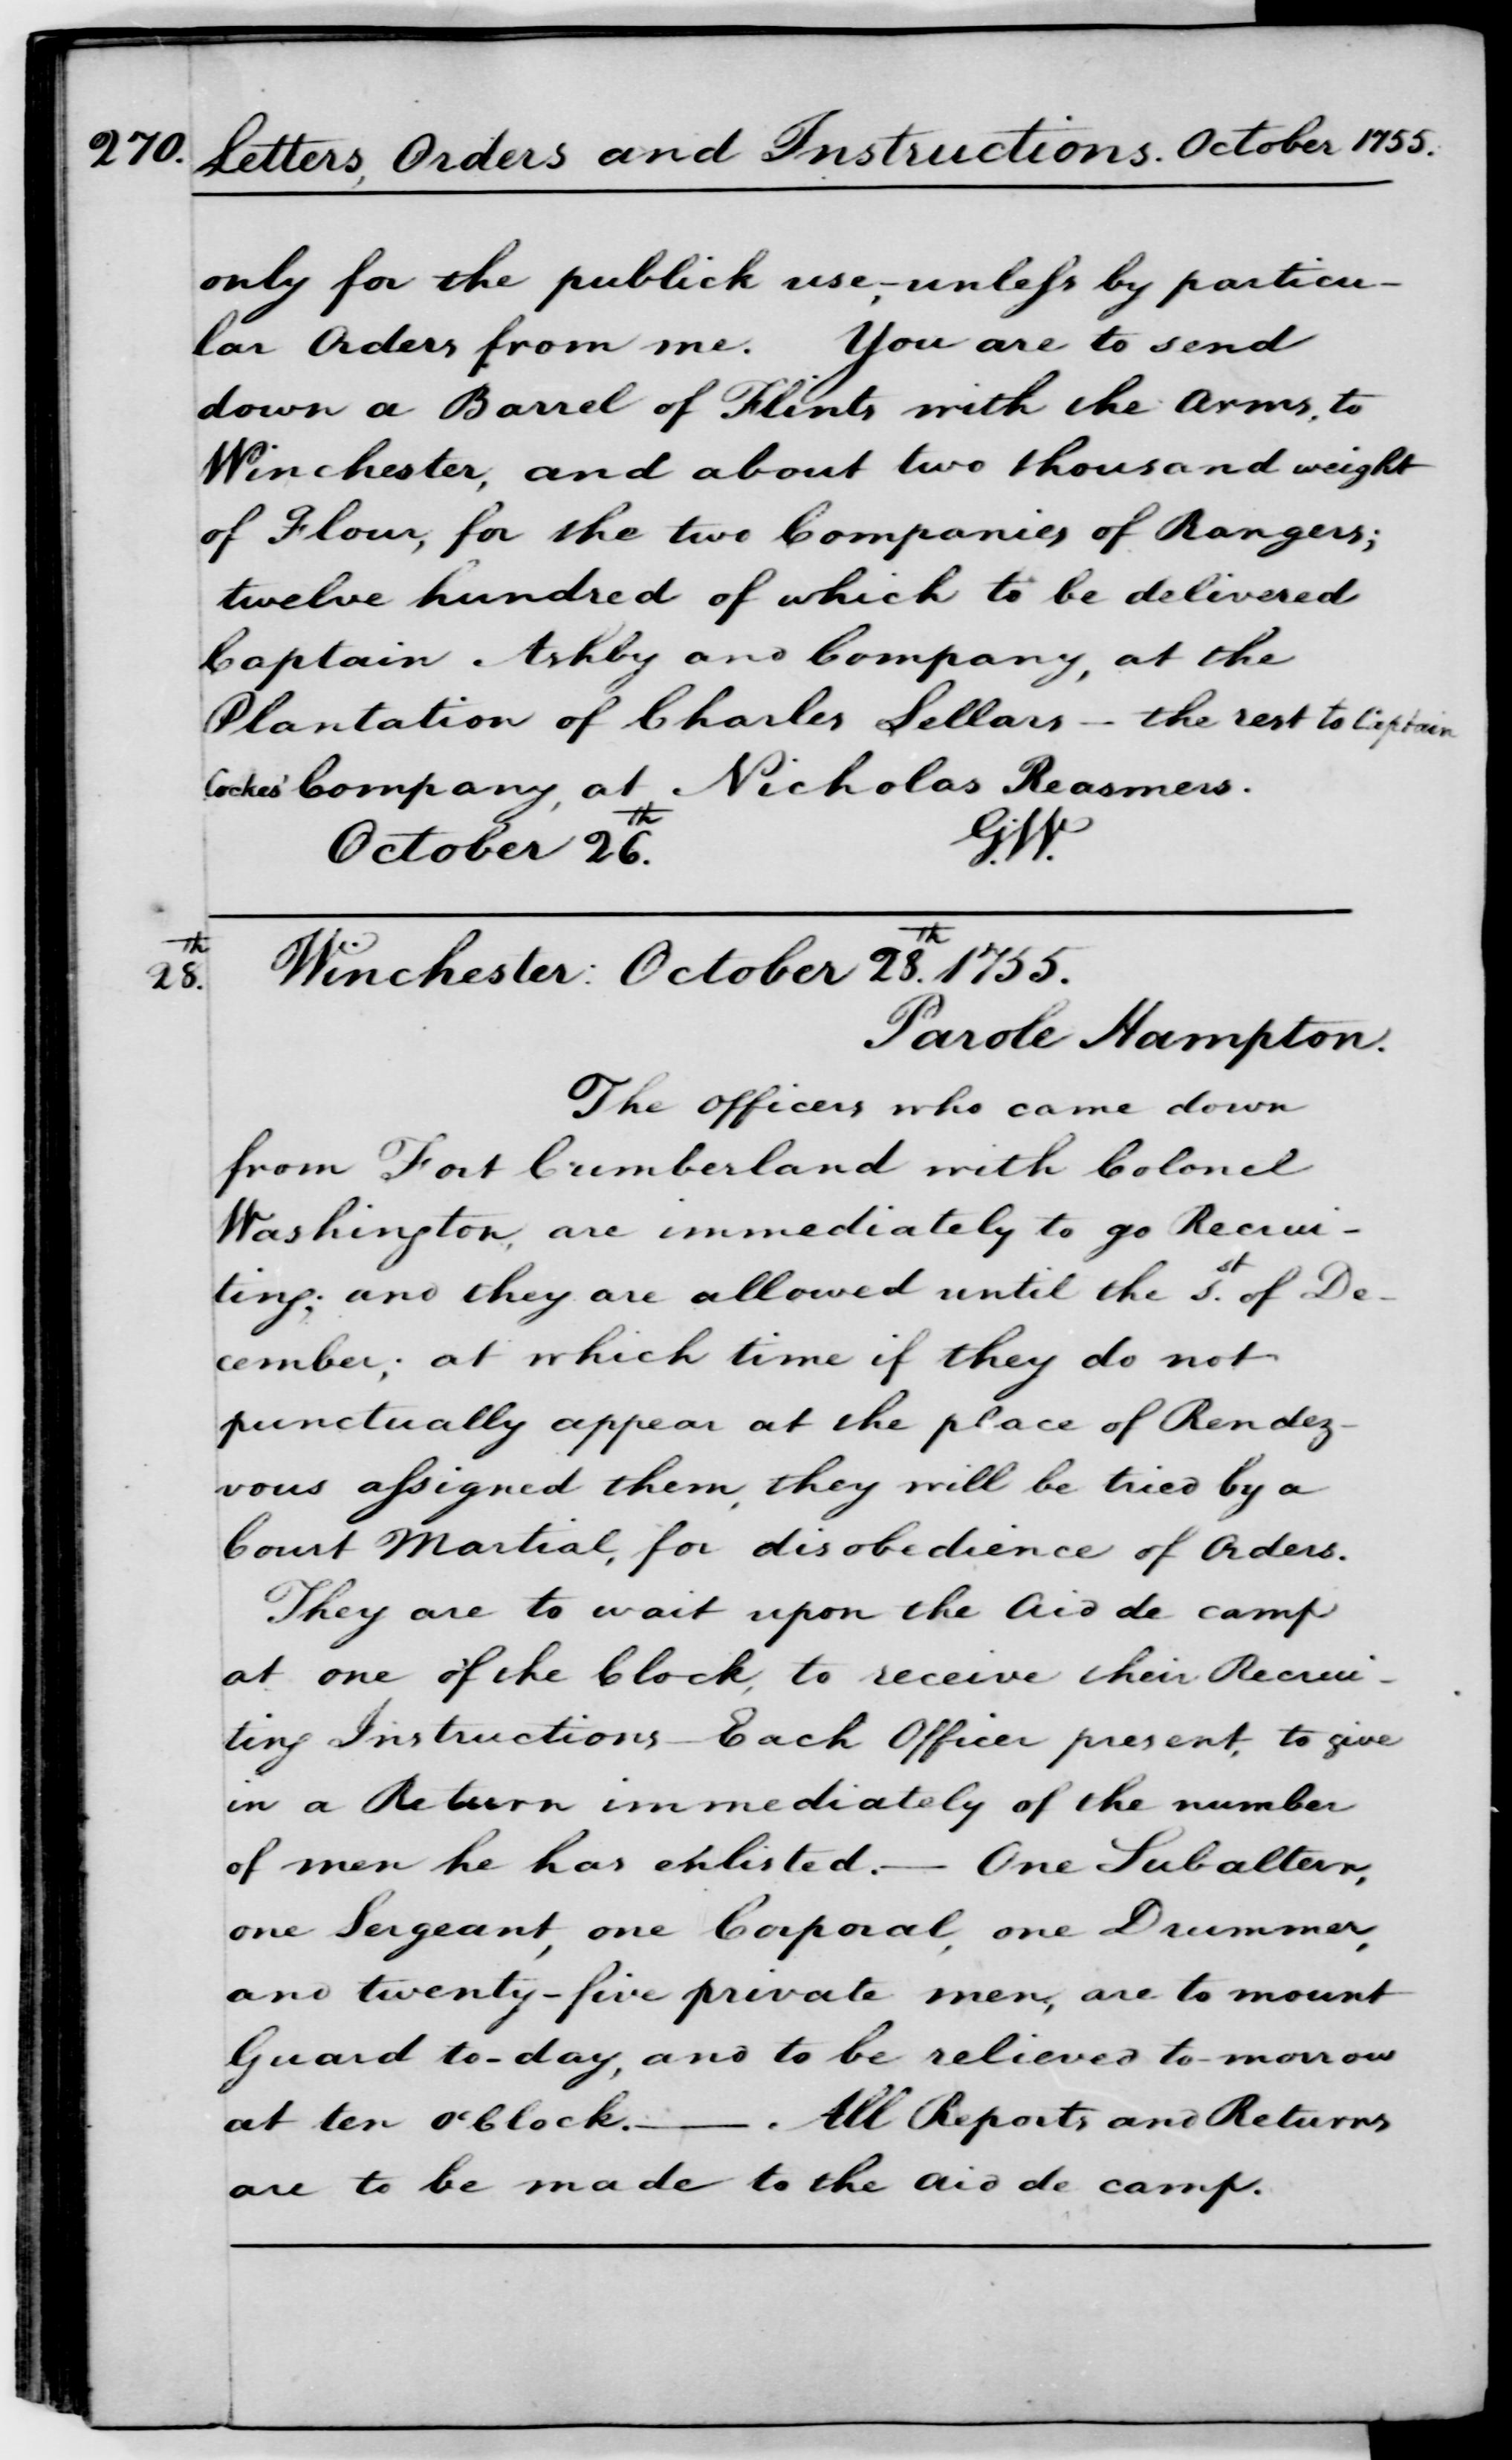 270. Letters, Orders and Instructions. October 1755.
only for the publick use,-unless by particu-
lar Orders from me. You are to send
down a Barrel of Flints with the Arms, to
Winchester, and about two thousand weight
of Flour, for the two Companies of Rangers;
twelve hundred of which to be delivered
Captain Ashby and Company, at the
Plantation of Charles Sellars - the rest to Captain
Cockes' Company, at Nicholas Reasmers.
October 26th. G.W.
28th. Winchester: October 28th. 1755.
Parole Hampton.
The officers who came down
from Fort Cumberland with Colonel
Washington, are immediately to go Recrui-
ting; and they are allowed until the 1st. of De-
cember; at which time if they do not
punctually appear at the place of Rendez-
vous assigned them, they will be tried by a
Court Martial, for disobedience of Orders.
They are to wait upon the Aid de camp
at one of the Clock, to receive their Recrui-
ting Instructions - Each Officer present, to give
in a Return immediately of the number
of men he has enlisted. - One Subaltern,
one Sergeant, one Corporal, one Drummer,
and twenty-five private men, are to mount
Guard to-day, and to be relieved to-morrow
at ten o'Clock. - . All Reports and Returns
are to be made to the Aid de camp.